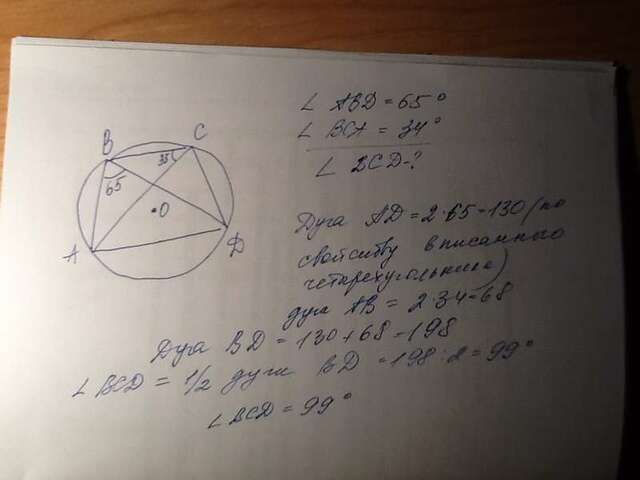 ∠ ABD = 65°
∠ BCA = 34°
∠ BCD-?
B
C
35
65
•O
A
D
Дуга AD = 2·65=130 (по
свойству вписанного
четырехугольника)
дуга AB = 2·34=68
Дуга BD = 130+68=198
∠ BCD = 1/2 дуги BD = 198:2=99°
∠ BCD = 99°